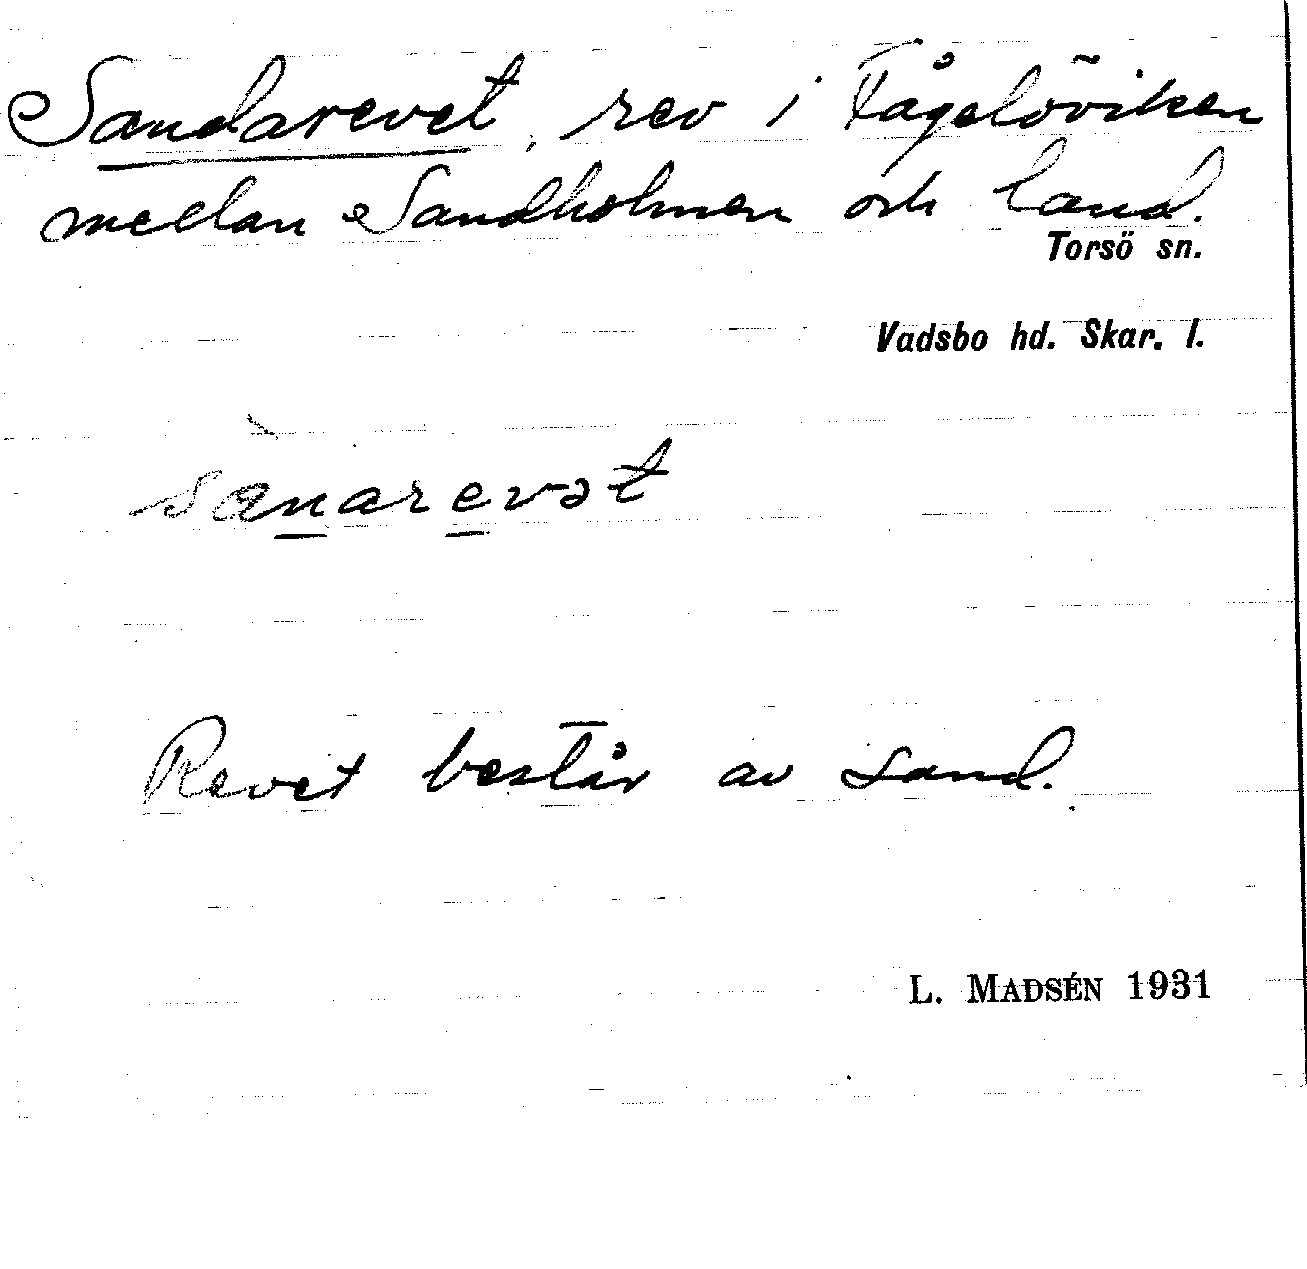 Sandarevet, rev i Fågelöviken
medan Sandholmen och land.
Torsö sn.
Vadsbo hd. Skar. l.
sànarevət
Revet består av sand.
L. MADSÉN 1931